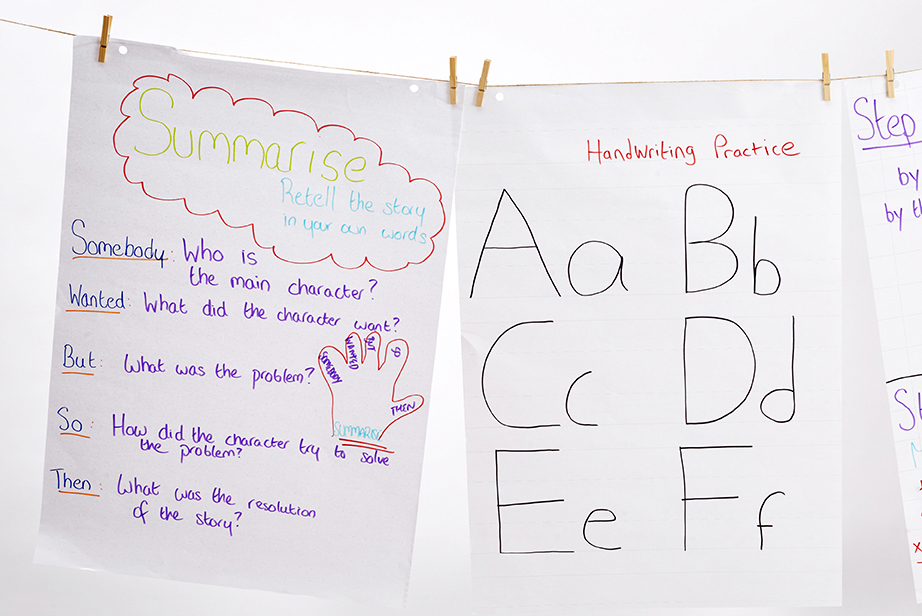 Summarise
Retell the story
in your own words
Somebody: Who is
the main character?
Wanted: What did the character want?
But: What was the problem?
So: How did the character try to solve
the problem?
Then: What was the resolution
of the story?
SOMEBODY
WANTED
BUT
SO
THEN
SUMMARISE
Handwriting Practice
A a B b
C c D d
E e F f
Step
by
by th
St
x